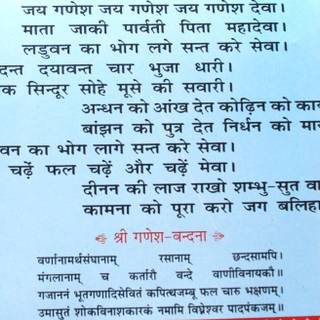 जय गणेश जय गणेश जय गणेश देवा।
माता जाकी पार्वती पिता महादेवा।
लडुवन का भोग लगे सन्त करे सेवा।
दन्त दयावन्त चार भुजा धारी।
सिन्दूर सोहे मूसे की सवारी।
अन्धन को आंख देत कोढ़िन को
बांझन को पुत्र देत निर्धन को
का भोग लागे सन्त करे सेवा।
चढ़ें फल चढ़ें और चढ़ें मेवा।
दीनन की लाज राखो शम्भु-सुत
कामना को पूरा करो जग
श्री गणेश-वन्दना
वर्णानामर्थसंघानाम् रसानाम् छन्दसामपि।
मंगलानाम् च कर्तारौ वन्दे वाणीविनायकौ॥
गजाननं भूतगणादिसेवितं कपित्थजम्बू फल चारु भक्षणम्।
उमासुतं शोकविनाशकारकं नमामि विघ्नेश्वर पादपंकजम्॥